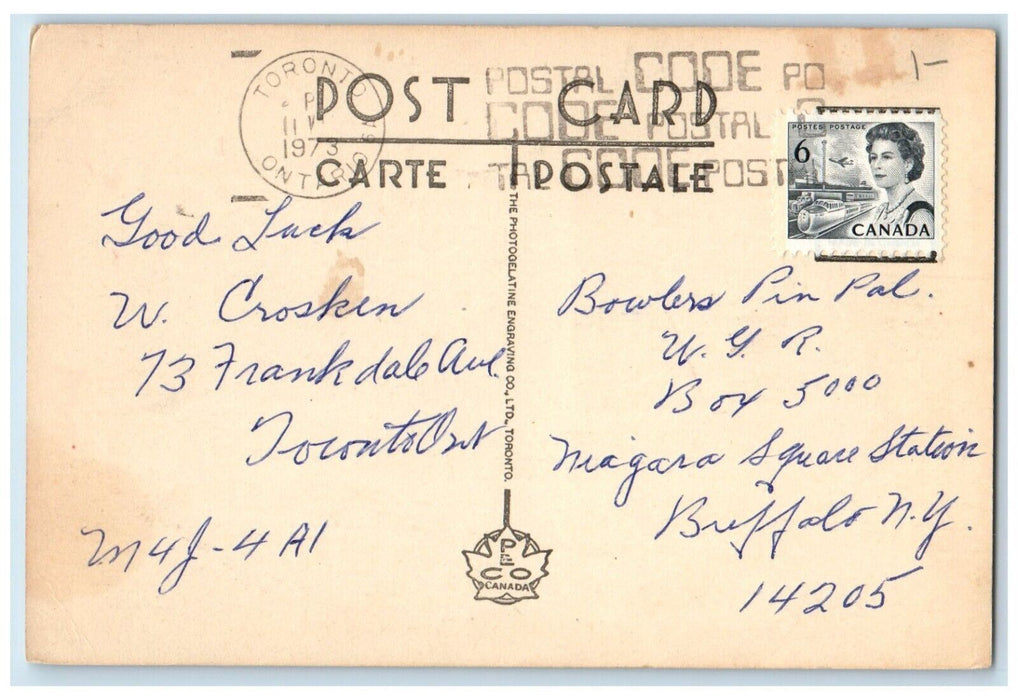 POST CARD
CARTE POSTALE
TORONTO
1973
ONTARIO
POSTAL CODE PO
CODE POSTAL
CODE POST
1-
POSTES POSTAGE
6
CANADA
Good Luck
W. Crosken
73 Frankdale Ave.
Toronto Ont
M4J-4A1
THE PHOTOGELATINE ENGRAVING CO., LTD., TORONTO.
PECO
CANADA
Bowlers Pin Pal.
W. G. R.
Box 5000
Niagara Square Station
Buffalo N.Y.
14205